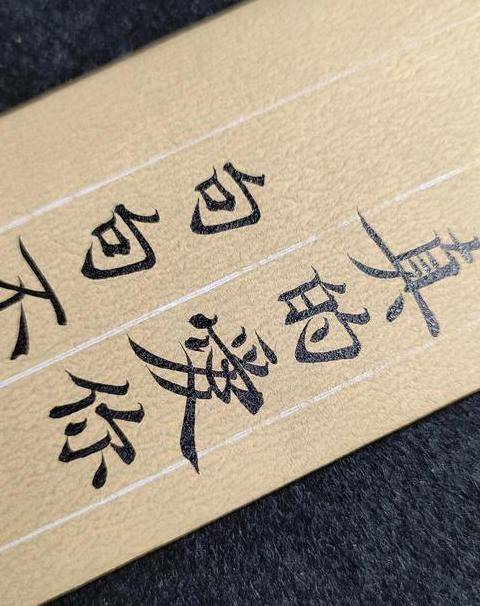 真的愛你
句句不